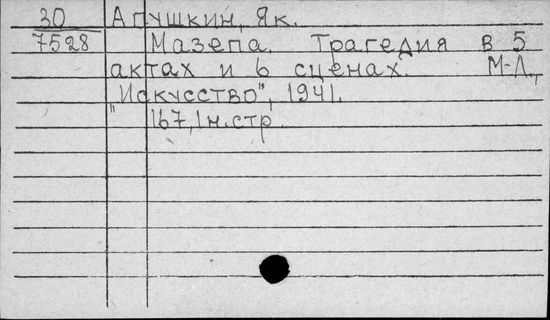 30 Апушкин, Як.
7528 Мазепа. Трагедия в 5
актах и 6 сценах. М-Л.,
"Искусство", 1941.
167, 1н.стр.